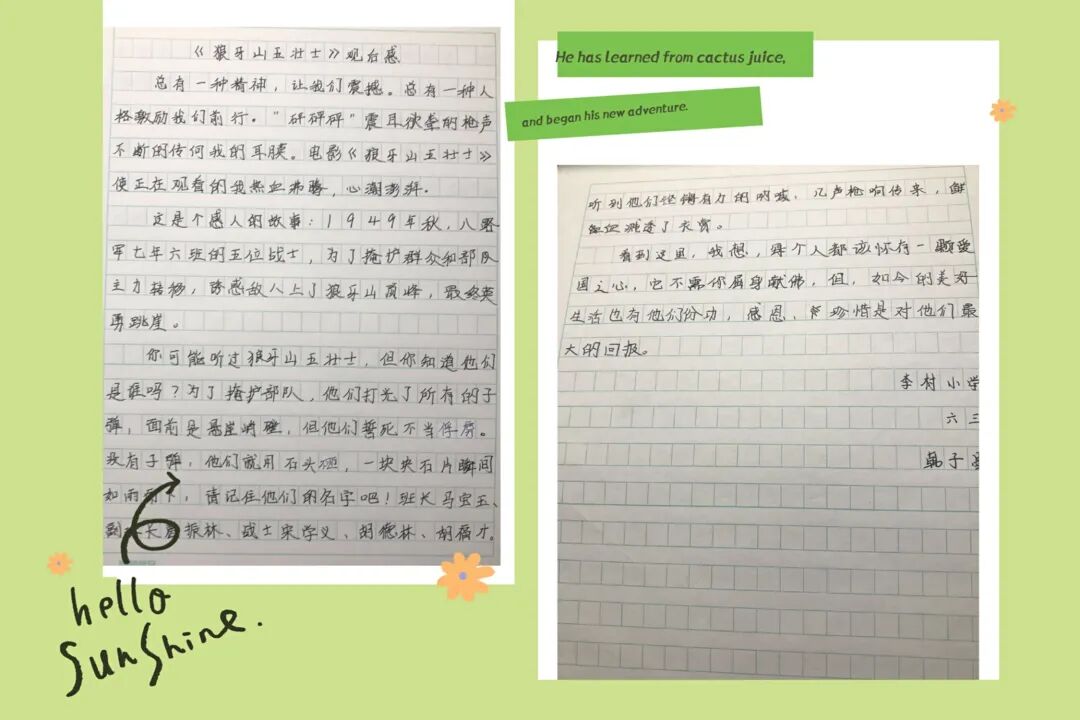 《狼牙山五壮士》观后感
总有一种精神，让我们震撼。总有一种人
格激励我们前行。"砰砰砰"震耳欲聋的枪声
不断的传向我的耳膜。电影《狼牙山五壮士》
使正在观看的我热血沸腾，心潮澎湃。
这是个感人的故事：1949年秋，八路
军七年六班的五位战士，为了掩护群众和部队
主力转移，诱惑敌人上了狼牙山顶峰，最终英
勇跳崖。
你可能听过狼牙山五壮士，但你知道他们
是谁吗？为了掩护部队，他们打光了所有的子
弹，面前是悬崖峭壁，但他们誓死不当俘虏。
没有子弹，他们就用石头砸，一块块石片瞬间
如雨而下，请记住他们的名字吧！班长马宝玉、
副班长葛振林、战士宋学义、胡德林、胡福才。
hello
sunshine.
He has learned from cactus juice,
and began his new adventure.
听到他们铿锵有力的呐喊，几声枪响传来，鲜
血溅透了衣裳。
看到这里，我想，每个人都该怀有一颗爱
国之心，它不需你屈身献佛，但，如今的美好
生活也有他们份功，感恩、珍惜是对他们最
大的回报。
李村小学
六三
韩子